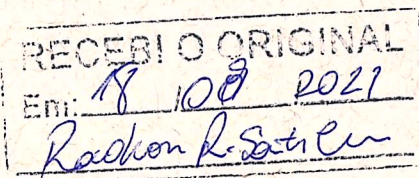 RECEBI O ORIGINAL
Em: 18 / 08 / 2021
R.